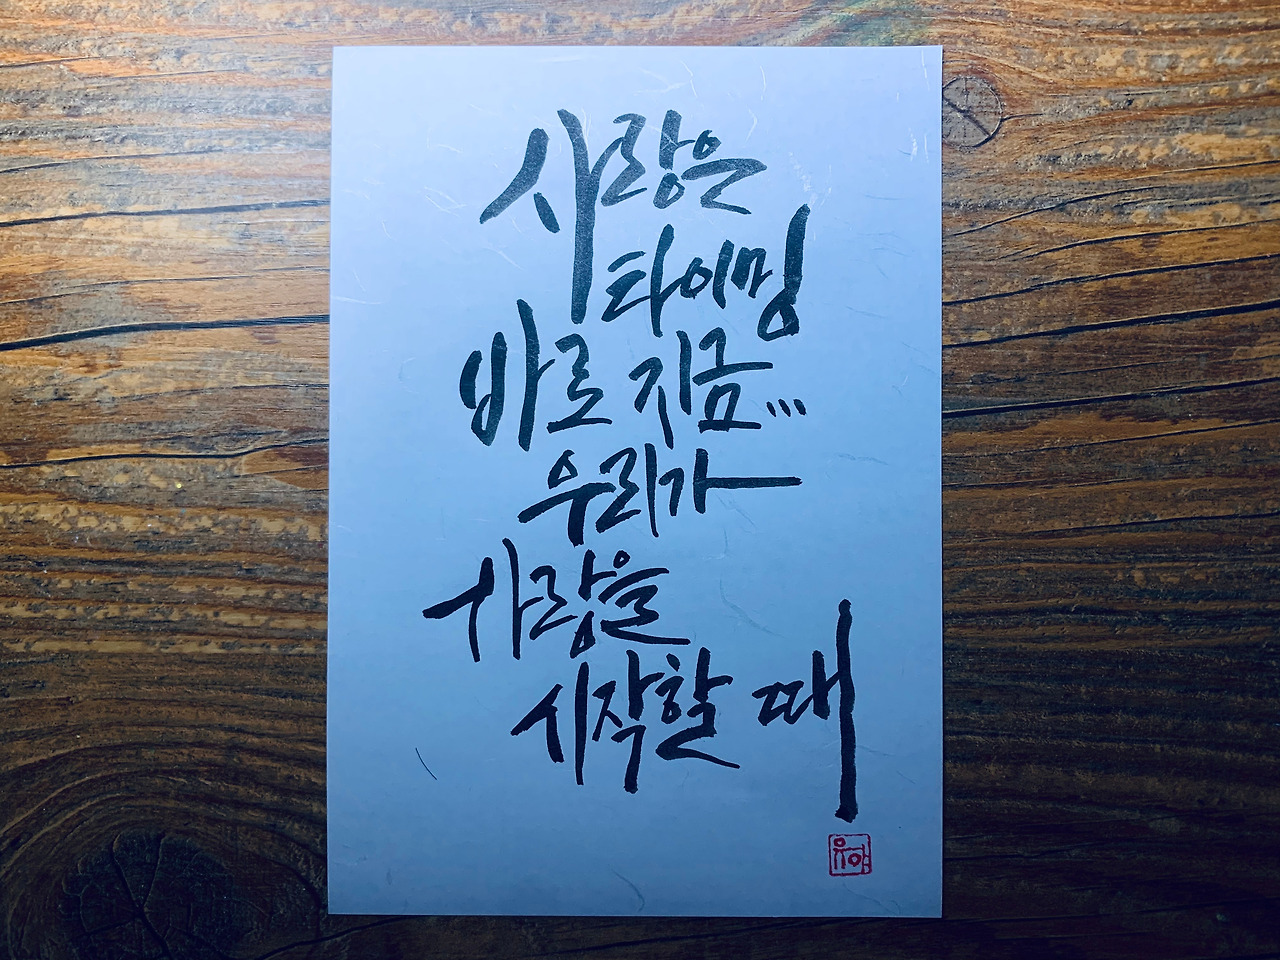 사랑은
타이밍
바로 지금...
우리가
사랑을
시작할 때